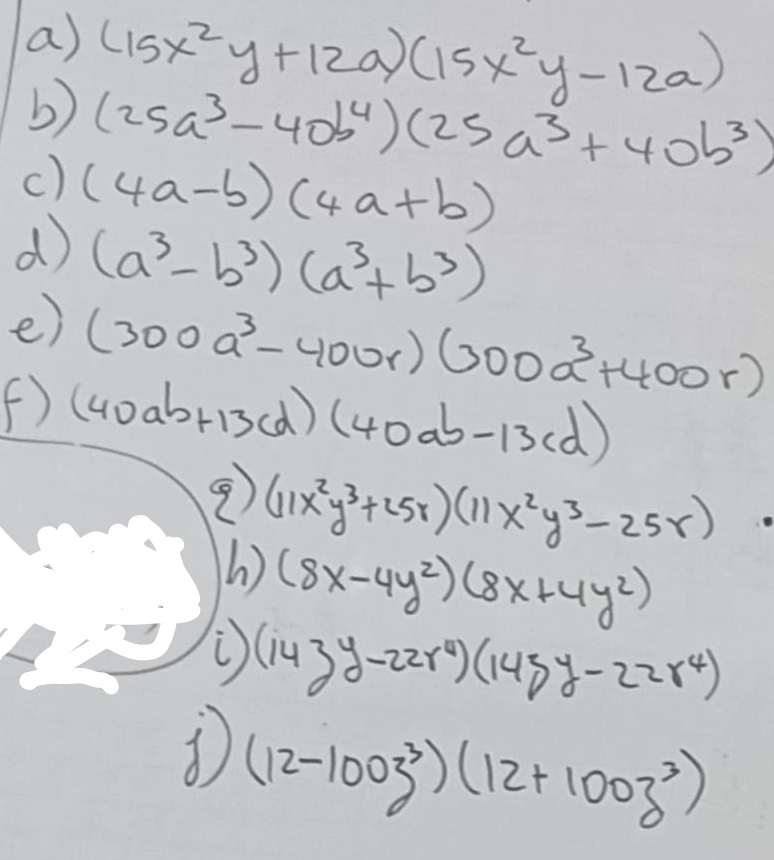 a) (15x²y+12a)(15x²y-12a)
b) (25a³-40b⁴)(25a³+40b³)
c) (4a-b)(4a+b)
d) (a³-b³)(a³+b³)
e) (300a³-400r)(300a³+400r)
f) (40ab+13cd)(40ab-13cd)
g) (11x²y³+25r)(11x²y³-25r)
h) (8x-4y²)(8x+4y²)
i) (14zy-22r⁴)(14zy-22r⁴)
j) (12-100z³)(12+100z³)